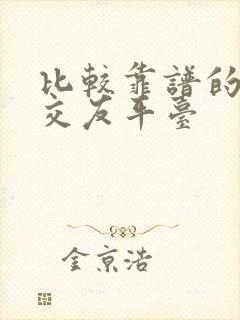 比較靠譜的
交友平臺
金京浩